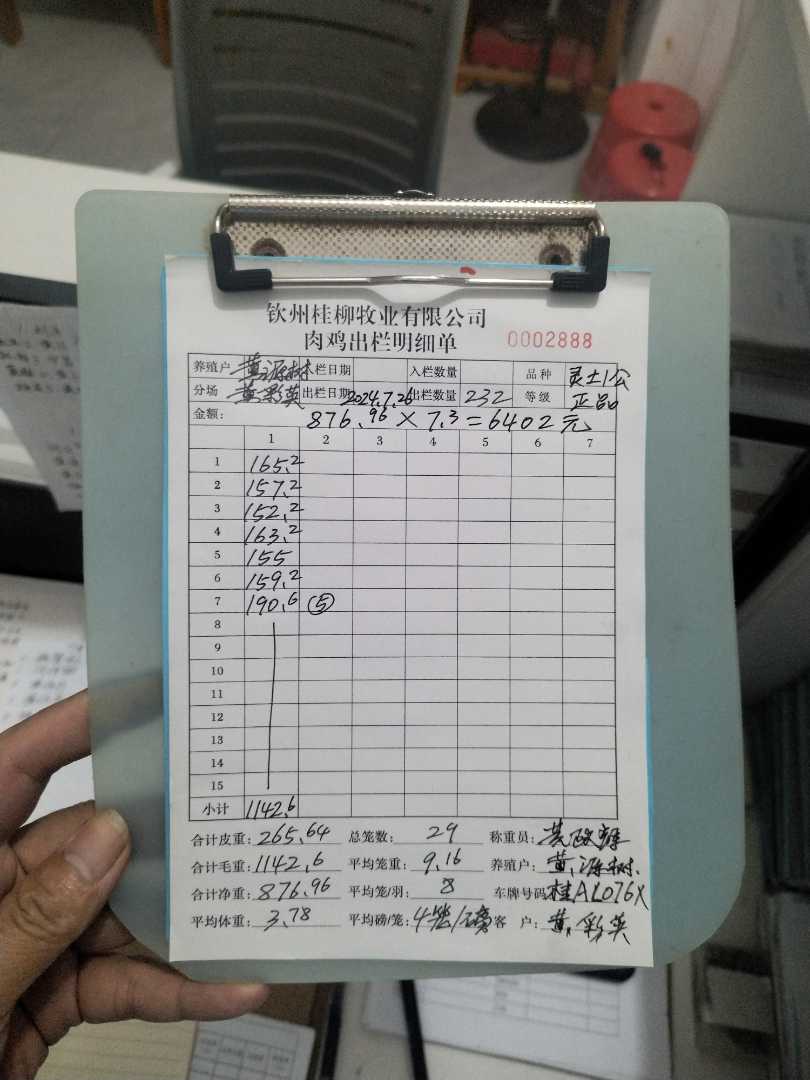 钦州桂柳牧业有限公司
肉鸡出栏明细单 0002888
养殖户 黄源树 栏日期 入栏数量 品种 灵土1公
分场 黄彩英 出栏日期 2024.7.26 出栏数量 232 等级 正品
金额: 876.96×7.3=6402元
1 2 3 4 5 6 7
1 165.2
2 157.2
3 152.2
4 163.2
5 155
6 159.2
7 190.6 ⑤
8
9
10
11
12
13
14
15
小计 1142.6
合计皮重: 265.64 总笼数: 29 称重员:
合计毛重: 1142.6 平均笼重: 9.16 养殖户: 黄源树
合计净重: 876.96 平均笼/羽: 8 车牌号码 桂AL076X
平均体重: 3.78 平均磅/笼: 4笼/磅 客户: 黄彩英